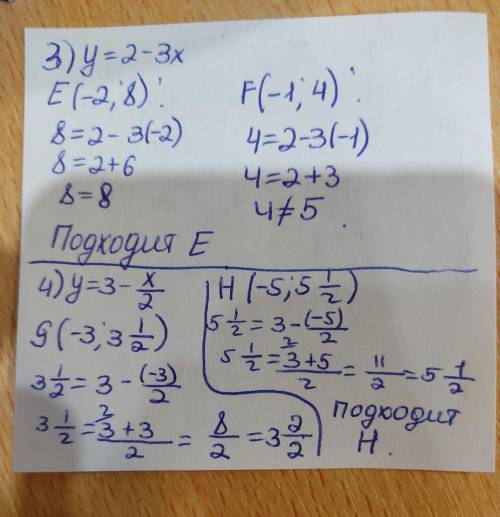 3) y = 2 - 3x
E(-2; 8):
8 = 2 - 3(-2)
8 = 2 + 6
8 = 8
F(-1; 4):
4 = 2 - 3(-1)
4 = 2 + 3
4 ≠ 5
Подходит E
4) y = 3 - x/2
G(-3; 3 1/2)
3 1/2 = 3 - (-3)/2
3 1/2 = (3² + 3)/2 = 8/2 = 3 2/2
H(-5; 5 1/2)
5 1/2 = 3 - (-5)/2
5 1/2 = (3² + 5)/2 = 11/2 = 5 1/2
подходит
H.